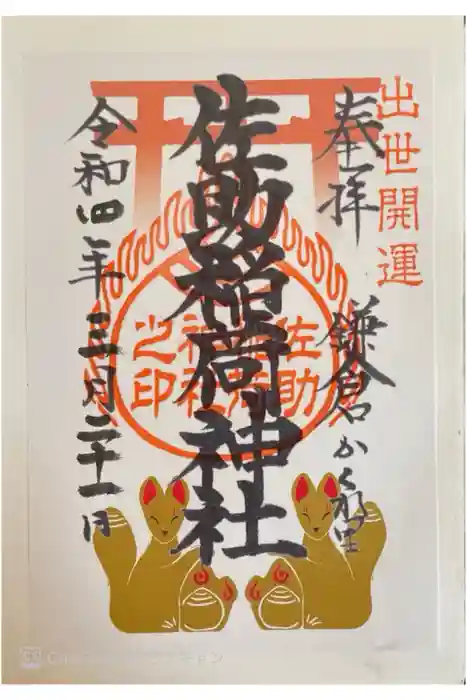 出世開運
奉拝
鎌倉かくれ里
佐助稲荷神社
佐助
稲荷
神社
之印
令和四年三月二十一日